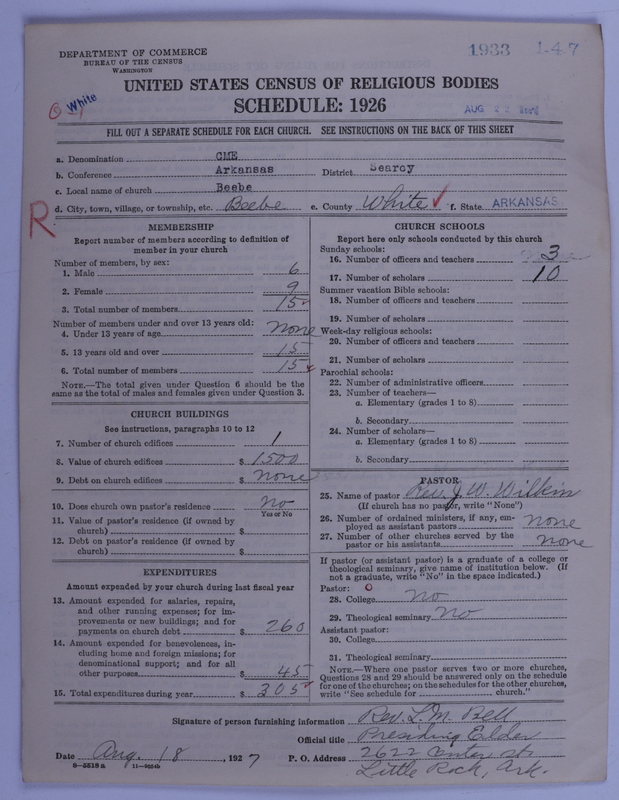 DEPARTMENT OF COMMERCE
BUREAU OF THE CENSUS
WASHINGTON
1933 1-47
UNITED STATES CENSUS OF RELIGIOUS BODIES
SCHEDULE: 1926
White
AUG
FILL OUT A SEPARATE SCHEDULE FOR EACH CHURCH. SEE INSTRUCTIONS ON THE BACK OF THIS SHEET
a. Denomination CME
b. Conference Arkansas District Searcy
c. Local name of church Beebe
d. City, town, village, or township, etc. Beebe e. County White f. State ARKANSAS
R
MEMBERSHIP
Report number of members according to definition of
member in your church
Number of members, by sex:
1. Male 6
2. Female 9
3. Total number of members 15
Number of members under and over 13 years old:
4. Under 13 years of age none
5. 13 years old and over 15
6. Total number of members 15
NOTE.—The total given under Question 6 should be the
same as the total of males and females given under Question 3.
CHURCH BUILDINGS
See instructions, paragraphs 10 to 12
7. Number of church edifices 1
8. Value of church edifices $ 1500
9. Debt on church edifices $ none
10. Does church own pastor's residence no
Yes or No
11. Value of pastor's residence (if owned by
church) $
12. Debt on pastor's residence (if owned by
church) $
EXPENDITURES
Amount expended by your church during last fiscal year
13. Amount expended for salaries, repairs,
and other running expenses; for im-
provements or new buildings; and for
payments on church debt $ 260
14. Amount expended for benevolences, in-
cluding home and foreign missions; for
denominational support; and for all
other purposes $ 45
15. Total expenditures during year $ 305
CHURCH SCHOOLS
Report here only schools conducted by this church
Sunday schools:
16. Number of officers and teachers 3
17. Number of scholars 10
Summer vacation Bible schools:
18. Number of officers and teachers
19. Number of scholars
Week-day religious schools:
20. Number of officers and teachers
21. Number of scholars
Parochial schools:
22. Number of administrative officers
23. Number of teachers—
a. Elementary (grades 1 to 8)
b. Secondary
24. Number of scholars—
a. Elementary (grades 1 to 8)
b. Secondary
PASTOR
25. Name of pastor Rev. J. W. Wilkin
(If church has no pastor, write "None")
26. Number of ordained ministers, if any, em-
ployed as assistant pastors none
27. Number of other churches served by the
pastor or his assistants none
If pastor (or assistant pastor) is a graduate of a college or
theological seminary, give name of institution below. (If
not a graduate, write "No" in the space indicated.)
Pastor: O
28. College no
29. Theological seminary no
Assistant pastor:
30. College
31. Theological seminary
NOTE.—Where one pastor serves two or more churches,
Questions 28 and 29 should be answered only on the schedule
for one of the churches; on the schedules for the other churches,
write "See schedule for church."
Signature of person furnishing information Rev. L. M. Bell
Official title Presiding Elder
Date Aug. 18, 1927 P. O. Address 2622 Center st
Little Rock, Ark.
8-5518a 11-9226b